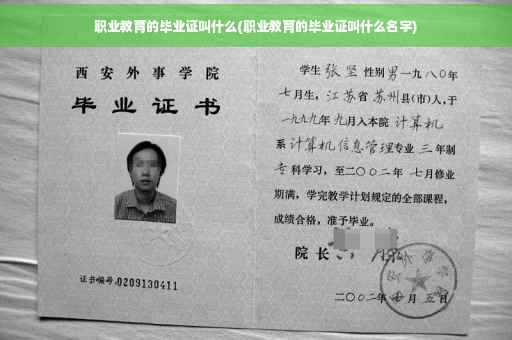 职业教育的毕业证叫什么(职业教育的毕业证叫什么名字)
西安外事学院
毕业证书
证书编号:0209130411
学生 张坚 性别男一九八〇年
七月生,江苏省 苏州县(市)人,于
一九九九年 九月入本院 计算机
系 计算机信息管理专业 三 年制
专 科学习,至二〇〇二年 七月修业
期满,学完教学计划规定的全部课程,
成绩合格,准予毕业。
院 长
二〇〇二年 月 五日